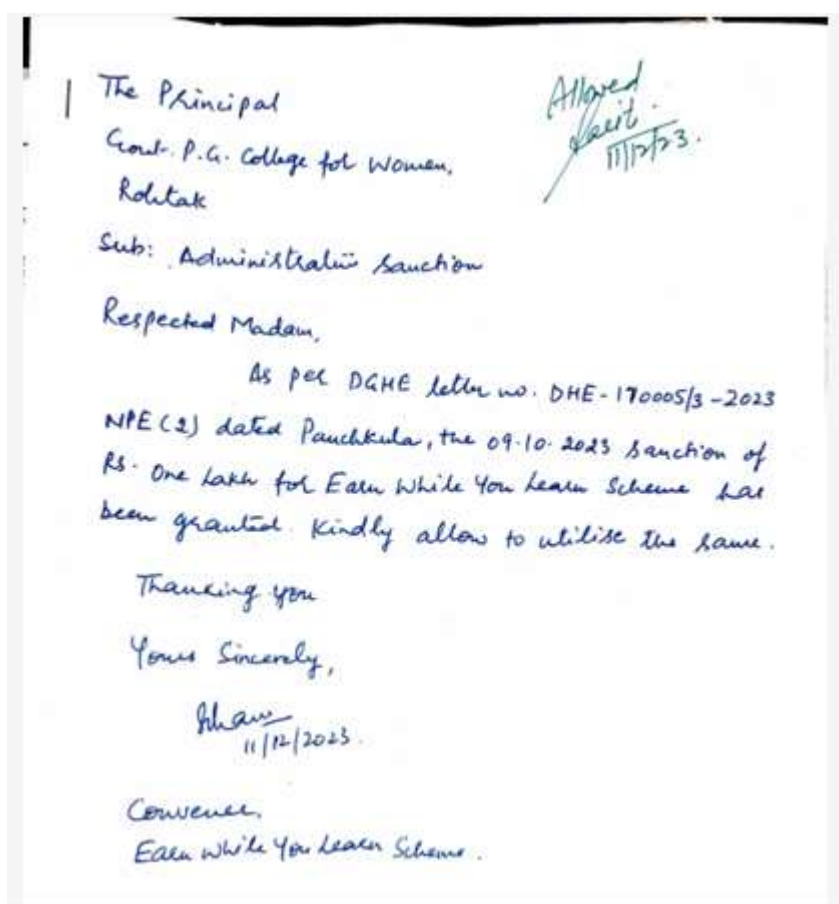 The Principal
Govt. P.G. College for Women,
Rohtak
Allowed
11/12/23.
Sub: Administrative Sanction
Respected Madam,
As per DGHE letter no. DHE-170005/3-2023
NPE(2) dated Panchkula, the 09.10.2023 Sanction of
Rs. One Lakh for Earn While You Learn Scheme has
been granted. Kindly allow to utilise the same.
Thanking you
Yours Sincerely,
11/12/2023.
Convener,
Earn While You Learn Scheme.